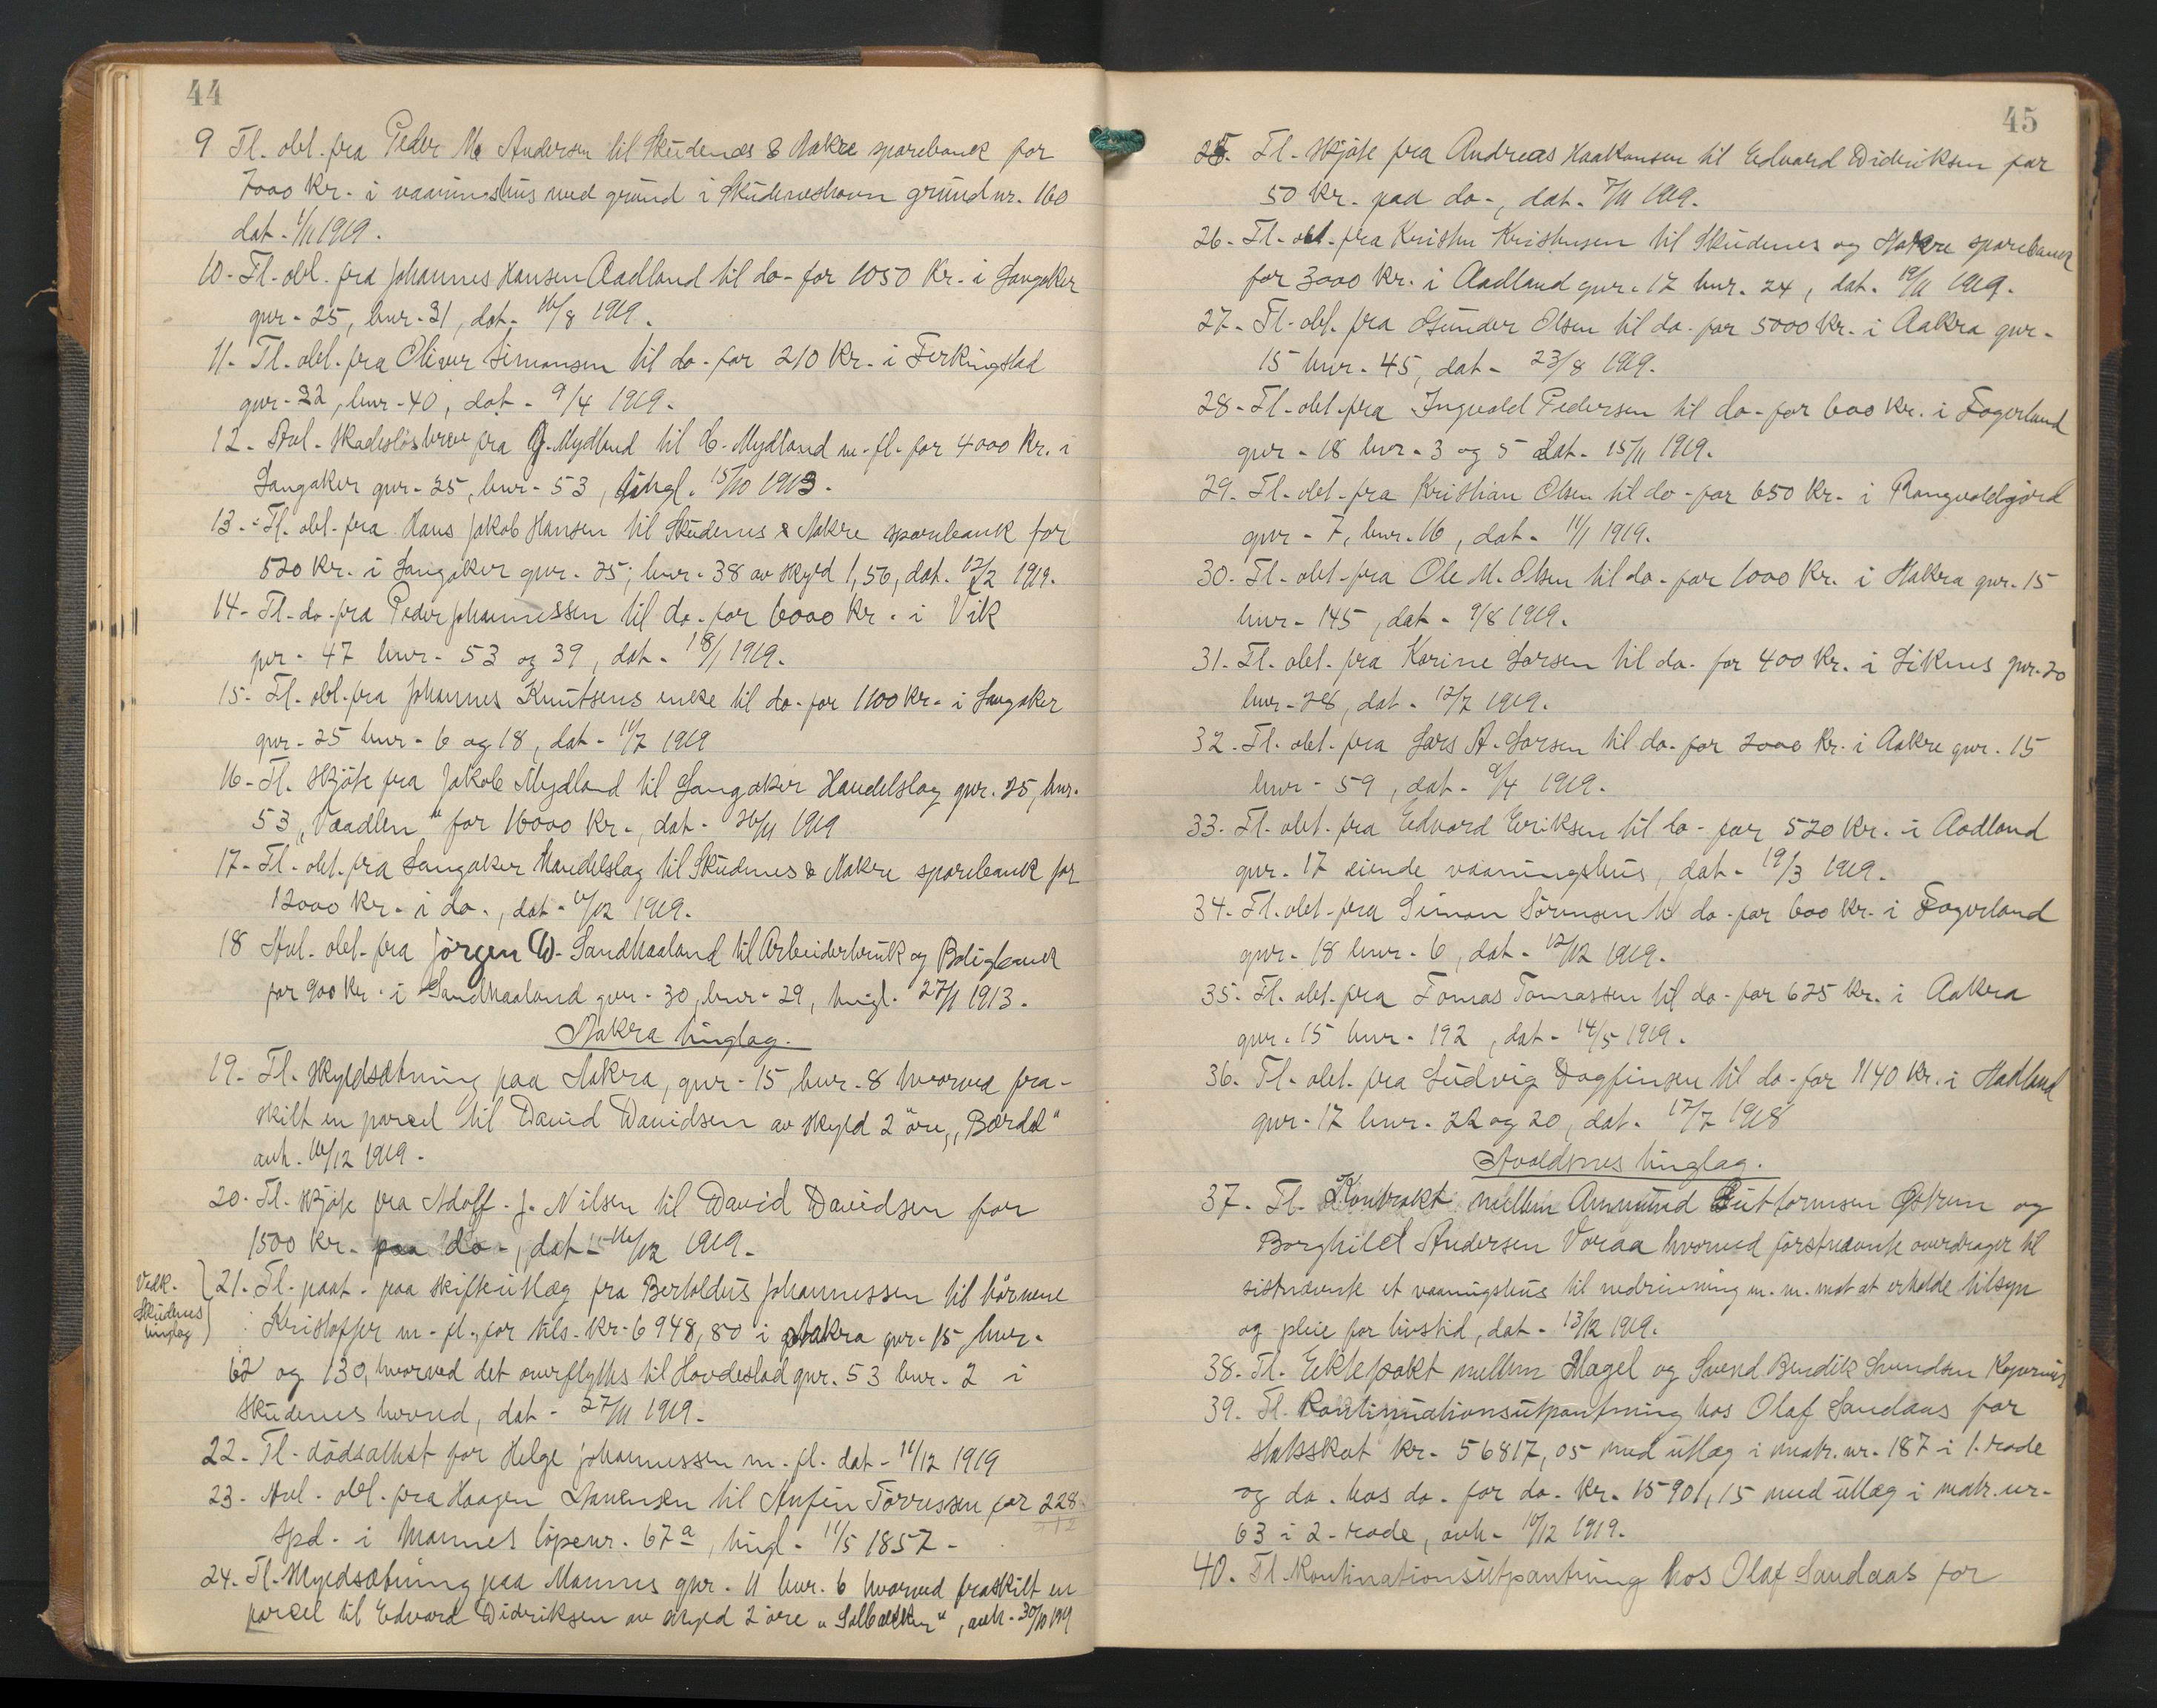 44
9 Tl. obl. fra Peder M. Andersen til Skudenes & Aakre sparebank for
7000 kr. i vaaningshus med grund i Skudeneshavn grundnr. 160
dat. 1/11 1919.
10. Tl. obl. fra Johannes Hansen Aadland til do. for 1050 kr. i Langaker
gnr. 25, bnr. 31, dat. 16/8 1919.
11. Tl. obl. fra Oliver Simonsen til do. for 210 kr. i Ferkingstad
gnr. 22, bnr. 40, dat. 9/4 1919.
12. Avl. skadesløsbrev fra J. Mydland til C. Mydland m. fl. for 4000 kr. i
Langaker gnr. 25, bnr. 53, tingl. 15/10 1913.
13. Tl. obl. fra Hans Jakob Hansen til Skudenes & Aakre sparebank for
520 kr. i Langaker gnr. 25, bnr. 38 av skyld 1,56, dat. 12/2 1919.
14. Tl. do. fra Peder Johannessen til do. for 6000 kr. i Vik
gnr. 47 bnr. 53 og 39, dat. 18/1 1919.
15. Tl. obl. fra Johannes Knutsens enke til do. for 1100 kr. i Langaker
gnr. 25 bnr. 6 og 18, dat. 11/7 1919
16. Tl. skjøte fra Jakob Mydland til Langaker Handelslag gnr. 25, bnr.
53 „Vaadlen" for 16000 kr., dat. 26/11 1919
17. Tl. obl. fra Langaker Handelslag til Skudenes & Aakre sparebank for
12000 kr. i do., dat. 10/12 1919.
18 Avl. obl. fra Jörgen W. Sandhaaland til Arbeiderbruk og Boligbank
for 900 kr. i Sandhaaland gnr. 30, bnr. 29, tingl. 27/1 1913.
Aakra tinglag.
19. Tl. skyldsætning paa Aakra, gnr. 15, bnr. 8 hvorved fra-
skilt en parcel til David Davidsen av skyld 2 öre, „Bærdd"
avh. 16/12 1919.
20. Tl. skjøte fra Adolf J. Nilsen til David Davidsen for
1500 kr. paa do., dat. 16/12 1919.
Vedk.
Skudenes
tinglag
21. Tl. paat. paa skifteutlæg fra Bertoldus Johannessen til börnene
Kristoffer m. fl. for tils. kr. 6948,80 i Aakra gnr. 15 bnr.
62 og 130, hvorved det overflyttes til Hovdestad gnr. 53 bnr. 2 i
Skudenes herred, dat. 27/11 1919.
22. Tl. dödsattest for Helge Johannessen m. fl. dat. 11/12 1919
23. Avl. obl. fra Haagen til Anfin Torressen for 228
spd. i Mannes löpenr. 67a, tingl. 11/5 1857.
24. Tl. Skyldsætning paa Mannes gnr. 11 bnr. 6 hvorved fraskilt en
parcel til Edvard Didriksen av skyld 2 öre , avh. 30/10 1919
45
25. Tl. skjøte fra Andreas Haakonsen til Edvard Didriksen for
50 kr. paa do., dat. 7/11 1919.
26. Tl. obl. fra Kristen Kristensen til Skudenes og Aakre sparebank
for 3000 kr. i Aadland gnr. 17 bnr. 24, dat. 19/11 1919.
27. Tl. obl. fra Gunder Olsen til do. for 5000 kr. i Aakra gnr.
15 bnr. 45, dat. 23/8 1919.
28. Tl. obl. fra Ingvald Pedersen til do. for 600 kr. i Fagerland
gnr. 18 bnr. 3 og 5 dat. 15/11 1919.
29. Tl. obl. fra Kristian Olsen til do. for 650 kr. i Rangvaldgjord
gnr. 7, bnr. 16, dat. 11/1 1919.
30. Tl. obl. fra Ole M. Olsen til do. for 1000 kr. i Aakra gnr. 15
bnr. 145, dat. 9/8 1919.
31. Tl. obl. fra Karine Larsen til do. for 400 kr. i Liknes gnr. 20
bnr. 28, dat. 12/7 1919.
32. Tl. obl. fra Lars A. Larsen til do. for 2000 kr. i Aakre gnr. 15
bnr. 59, dat. 9/4 1919.
33. Tl. obl. fra Edvard Eeriksen til do. for 520 kr. i Aadland
gnr. 17 eiende vaaningshus, dat. 19/3 1919.
34. Tl. obl. fra Simon Sörensen til do. for 600 kr. i Fagerland
gnr. 18 bnr. 6, dat. 12/12 1919.
35. Tl. obl. fra Tomas Tomassen til do. for 625 kr. i Aakra
gnr. 15 bnr. 192, dat. 14/5 1919.
36. Tl. obl. fra Ludvig Dagfinsen til do. for 1140 kr. i Aadland
gnr. 17 bnr. 22 og 20, dat. 17/7 1918
Avaldsnes tinglag.
37. Tl. Kontrakt mellem Ammund Guttormsen Østrem og
Borghild Andersen Voraa hvorved førstnævnte overdrager til
sistnævnte et vaaningshus til nedrivning m. m. mot at erholde tilsyn
og pleie for livstid, dat. 13/12 1919.
38. Tl. Ektepakt mellem Magel og Svend Bendik Svendsen Kopernes
39. Tl. Kontinuationsutpantning hos Olaf Sandaas for
statsskat kr. 56817,05 med utlæg i matr. nr. 187 i 1. rode
og do. hos do. for do. kr. 15901,15 med utlæg i matr. nr.
63 i 2. rode, avh. 10/12 1919.
40. Tl Kontinationsutpantning hos Olaf Sandaas for